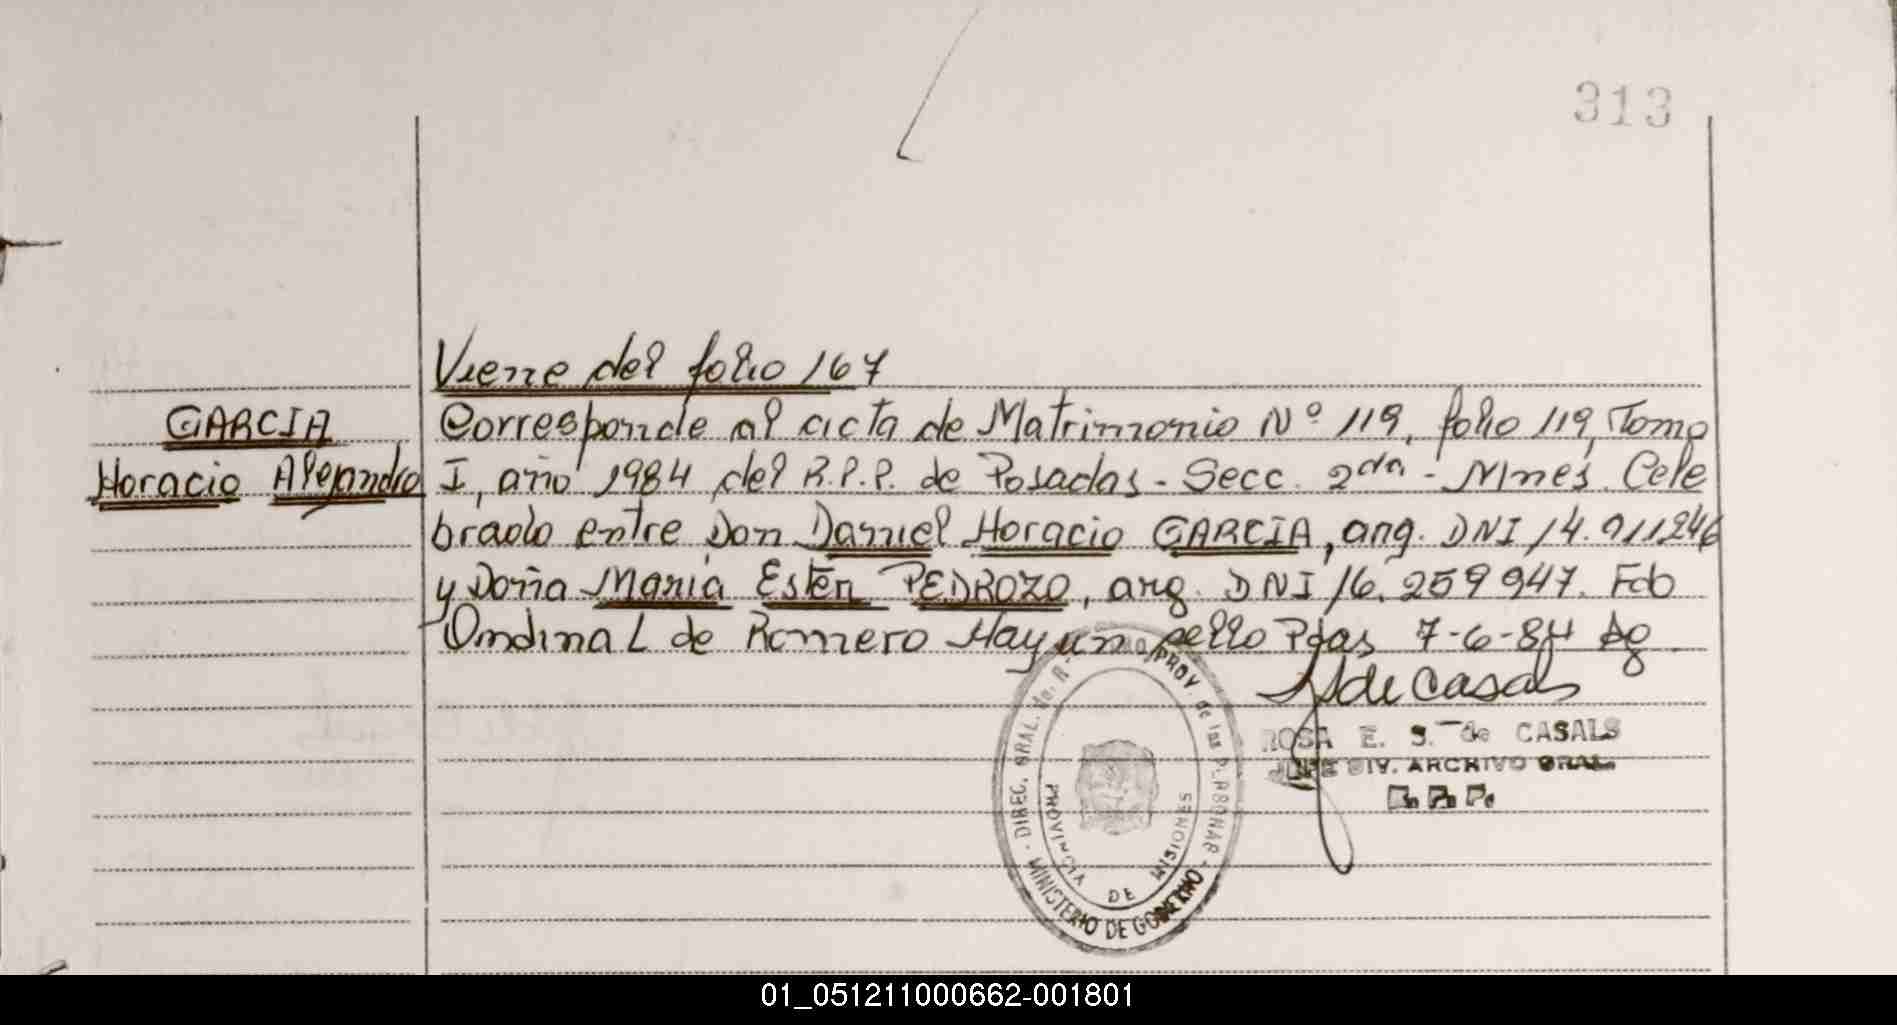 313
Viene del folio 167
GARCIA
Horacio Alejandro
Corresponde al acta de Matrimonio Nº 119, folio 119, Tomo
I, año 1984 del R.P.P. de Posadas - Secc. 2da - Mnes. Cele
brado entre Don Daniel Horacio GARCIA, arg. DNI 14.911246
y Doña Maria Ester PEDROZO, arg. DNI 16.259947. Fdo
Ondina L de Romero Hay un sello Pdas 7-6-84 Ag
de Casals
ROSA E. S. de CASALS
JEFE DIV. ARCHIVO GRAL.
R. P. P.
DIREC. GRAL. PROV. de las PERSONAS
MINISTERIO DE GOBIERNO
PROVINCIA DE MISIONES
01_051211000662-001801